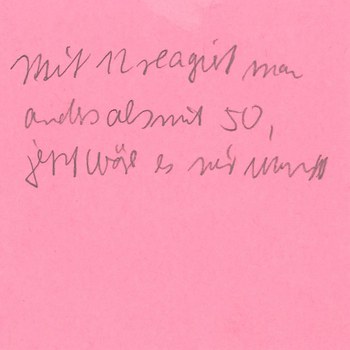 Mit 12 reagiert man
anders als mit 50,
jetzt wäre es mir